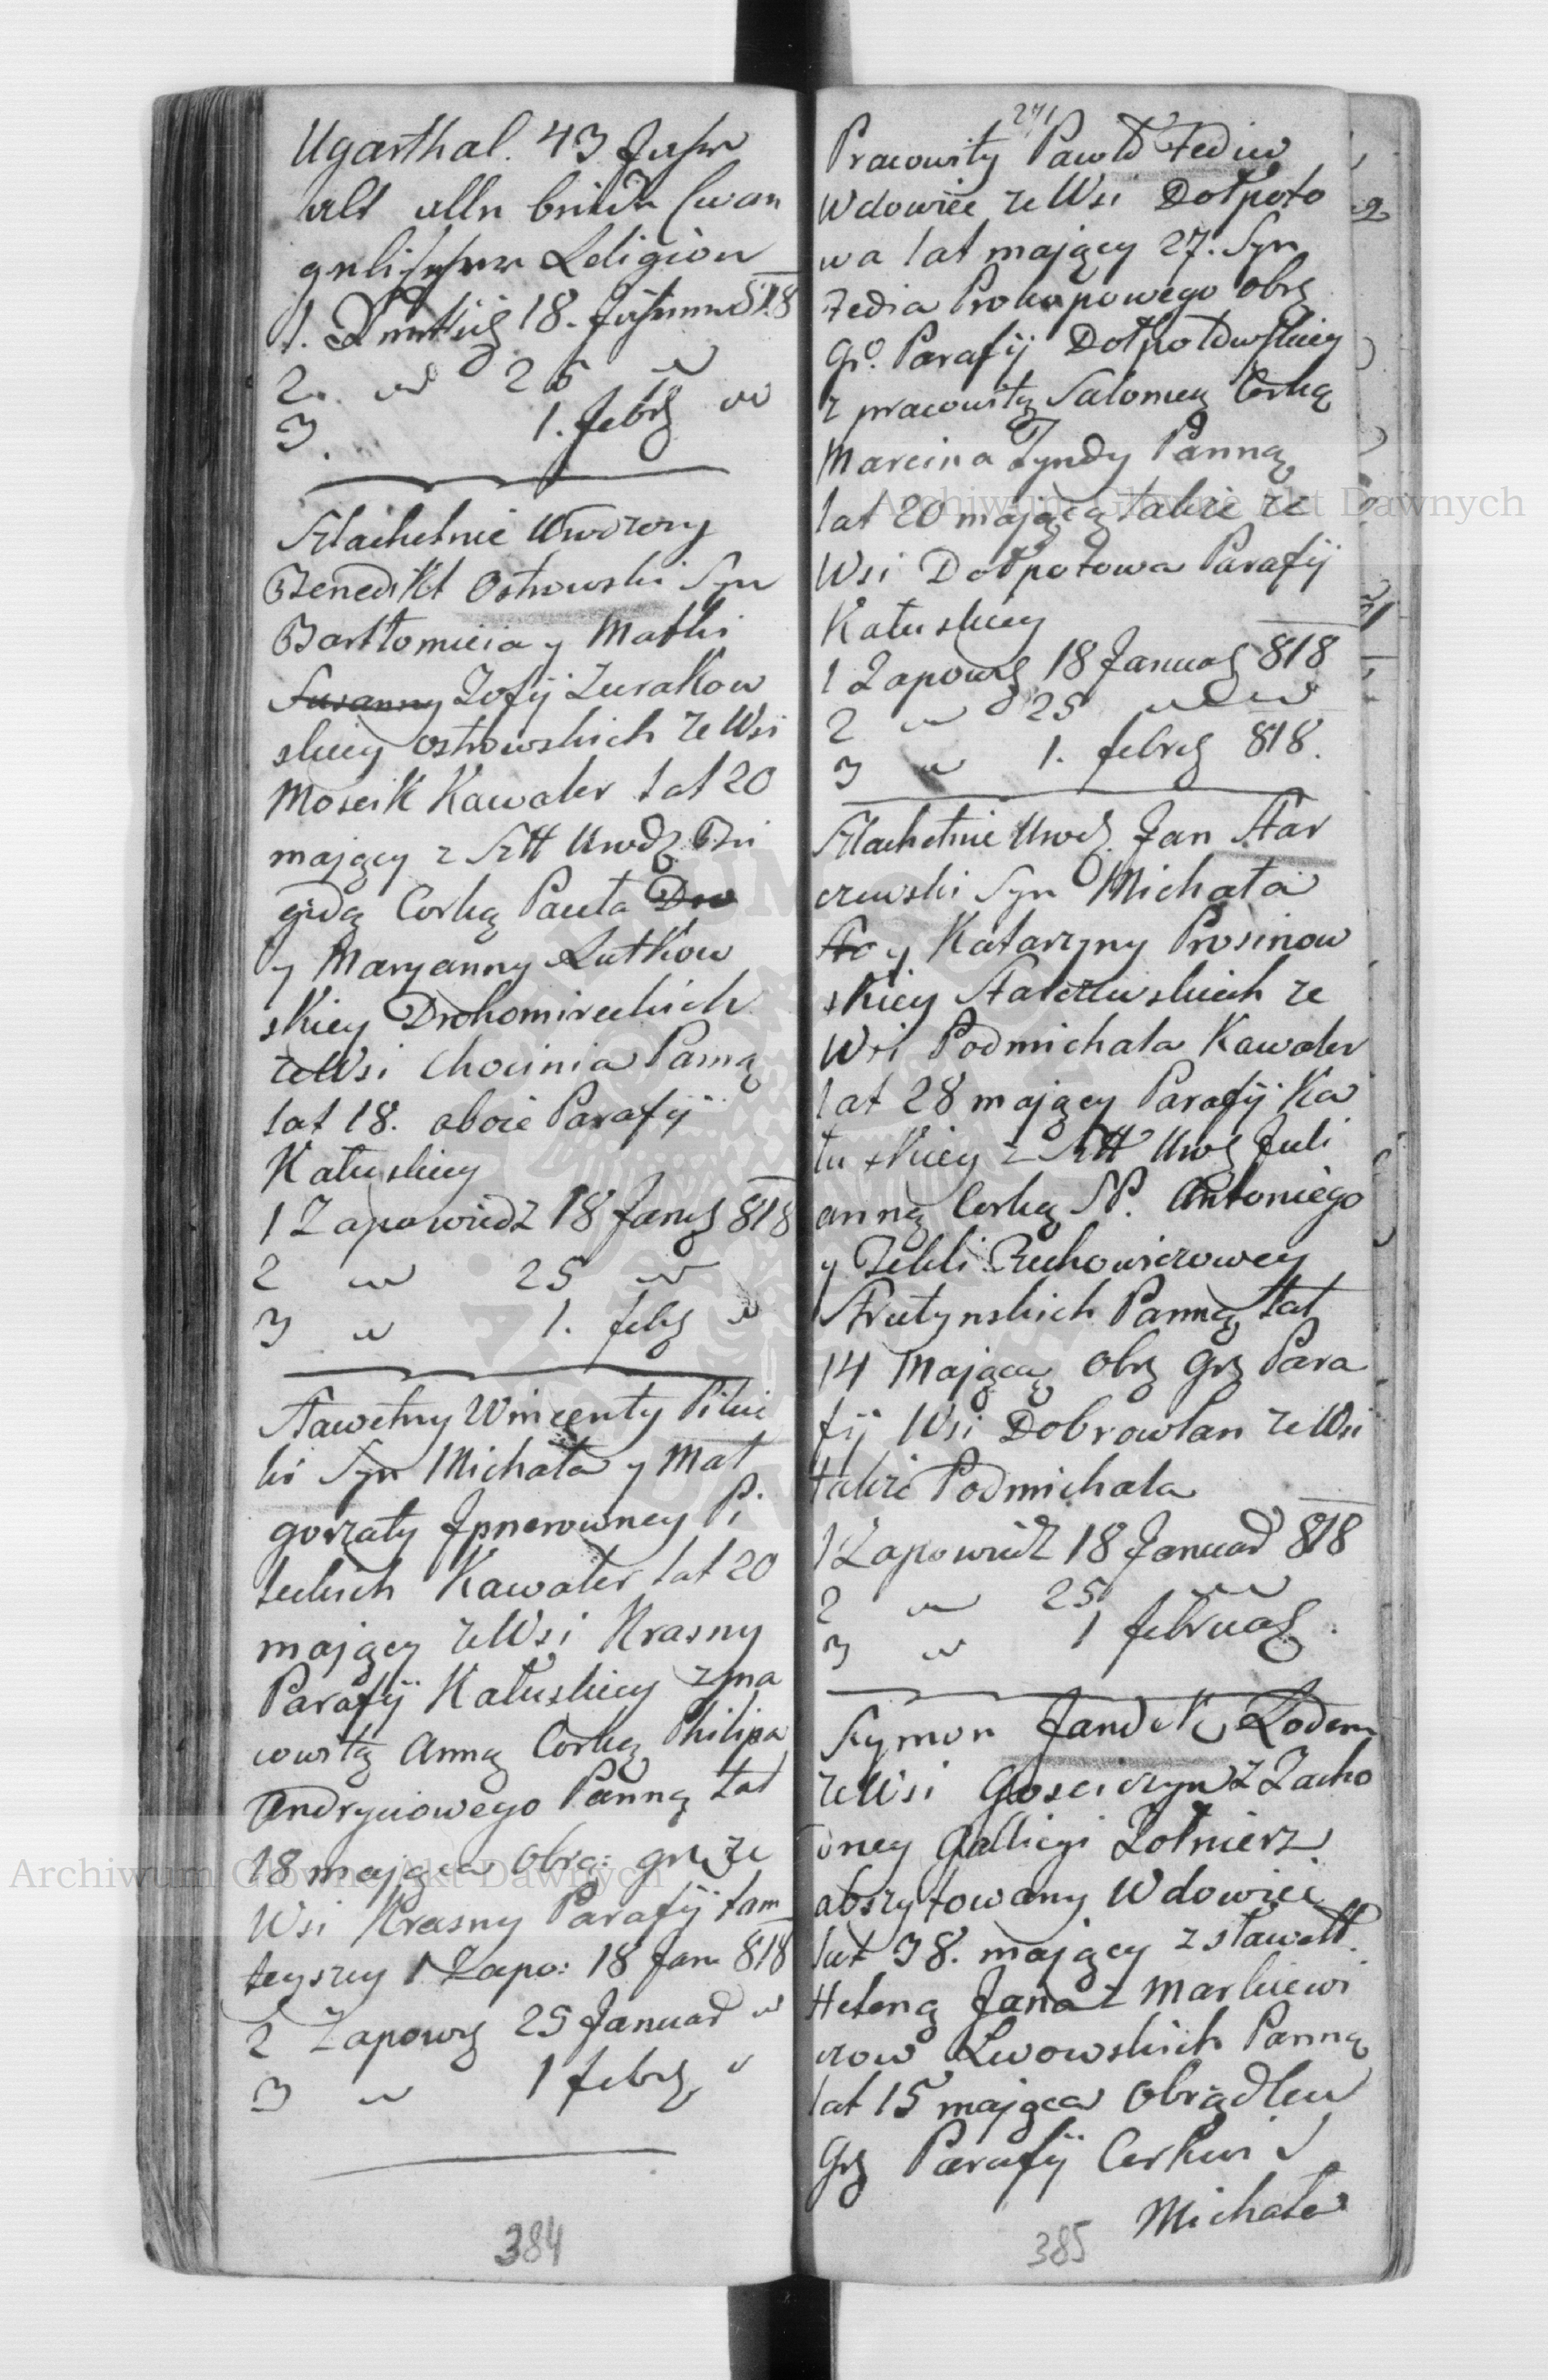 Ugarthal. 43 Jahr
alt alle beide Evan
gelischer Religion
1. 18. 818
2. " 25 "
3. 1. febr "
Szlachetnie Urodzony
Benedikt Ostrowski Syn
Bartłomieia y Matki
Susanny Zofij Zurakow
skiey Ostrowskich ze Wsi
Moscik Kawaler lat 20
mający z Szltt Urodz Bri
gidą Corką Pauła Dro
y Maryanny Lutkow
skiey Drohomireckich
ze Wsi Chocinia Panną
lat 18. oboie Parafij
Kałuskiey
1 Zapowiedz 18 Januar 818
2 " 25 "
3 " 1. febr "
Sławetny Wincenty Pilec
ki Syn Michała y Mał
gorzaty Pi
leckich Kawaler lat 20
mający ze Wsi Krasny
Parafij Kałuskiey z pra
cowitą Anną Corką Philipa
Andryiowego Panną lat
18 mająca Obrą: gr. ze
Wsi Krasny Parafij tam
teyszey 1 Zapo: 18 Jan 818
2 Zapow 25 Januar "
3 " 1 febr "
384
271
Pracowity Paweł Fediw
Wdowiec ze Wsi Dołpoto
wa lat mający 27. Syn
Fedia Prokopowego obrz
gr. Parafij Dołpotowskiey
z pracowitą Salomeą Corką
Marcina Tyndy Panną
lat 20 mającą także ze
Wsi Dołpotowa Parafij
Kałuskiey
1 Zapow 18 Januar 818
2 " 25 " "
3 " 1. febr 818.
Szlachetnie Urodz. Jan Star
czewski Syn Michała
Sta y Katarzyny Prosinow
skiey Starczewskich ze
Wsi Podmichala Kawaler
lat 28 mający Parafij Ka
łuskiey z Sztt Urodz Juli
anną Corką SP. Antoniego
y Tekli Zuchowiczowey
Strutynskich Panną lat
14 Mającą Obrz Grz Para
fij Wsi Dobrowlan ze Wsi
także Podmichala
1 Zapowiedz 18 Januar 818
2 " 25 "
3 " 1 februar.
Szymon Jandek Rodem
ze Wsi Gosciczyn z Zacho
dney Gallicyi Zołnierz
abszytowany Wdowiec
lat 38. mający z sławett.
Heleną Jana z Markiewi
czow Lwowskich Panną
lat 15 mająca Obrządku
Grz Parafij Cerkwi S
Michała
385
Archiwum Główne Akt Dawnych
Archiwum Główne Akt Dawnych